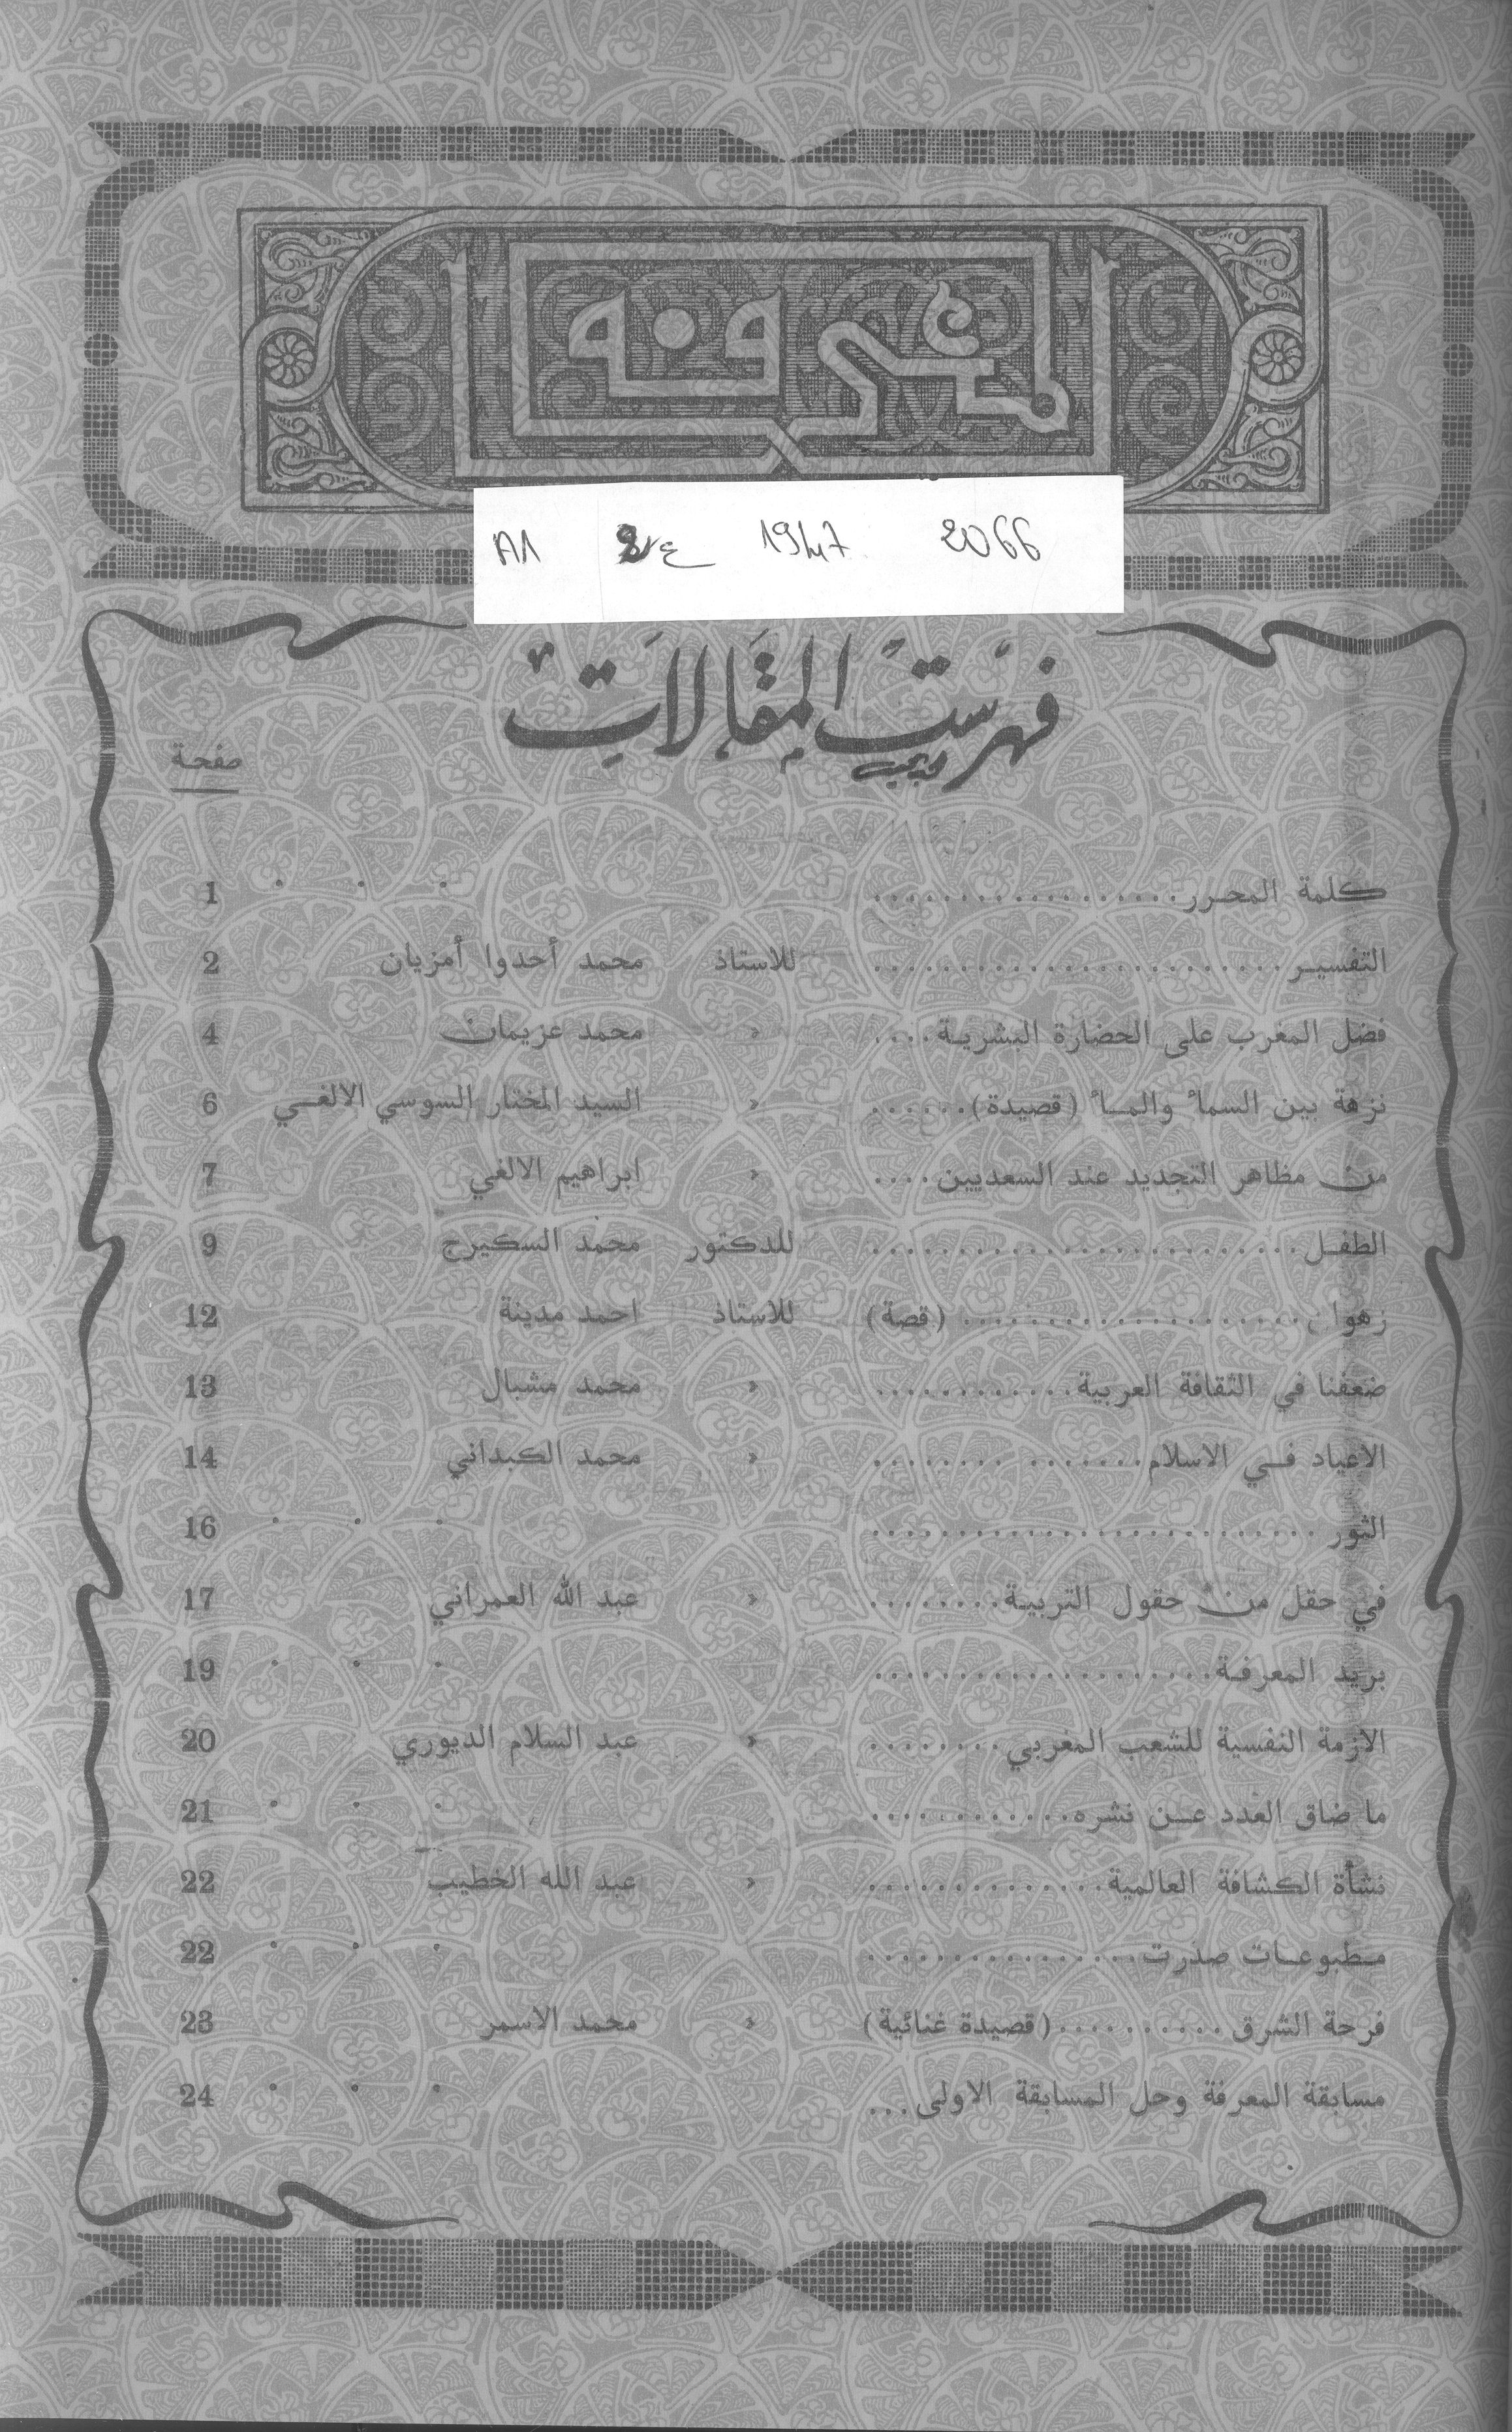 المعرفة
A1 ع 1947 2066
فهرست المقالات
صفحة
كلمة المحرر .................. . . . 1
التفسير ........................ للاستاذ محمد أحدوا أمزيان 2
فضل المغرب على الحضارة البشرية .... « محمد عزيمان 4
نزهة بين السمأ والمأ (قصيدة) ...... « السيد المختار السوسي الالغي 6
من مظاهر التجديد عند السعديين .... « ابراهيم الالغي 7
الطفل ......................... للدكتور محمد السكيرج 9
زهوا .................... (قصة) للاستاذ احمد مدينة 12
ضعفنا في الثقافة العربية ............ « محمد مشبال 13
الاعياد في الاسلام ............... « محمد الكبداني 14
الثور .......................... . . . 16
في حقل من حقول التربية ........ « عبد الله العمراني 17
بريد المعرفة .................... . . . 19
الازمة النفسية للشعب المغربي ........ « عبد السلام الديوري 20
ما ضاق العدد عن نشره ............ . . . 21
نشأة الكشافة العالمية .............. « عبد الله الخطيب 22
مطبوعات صدرت ................ . . . 22
فرحة الشرق .......... (قصيدة غنائية) « محمد الاسمر 23
مسابقة المعرفة وحل المسابقة الاولى ... . . . 24